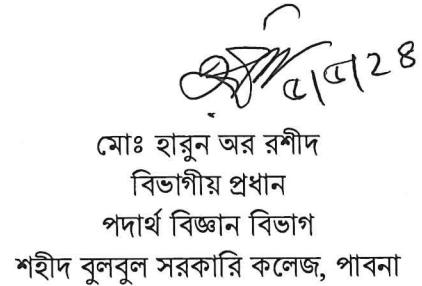 ৫/৫/২৪
মোঃ হারুন অর রশীদ
বিভাগীয় প্রধান
পদার্থ বিজ্ঞান বিভাগ
শহীদ বুলবুল সরকারি কলেজ, পাবনা